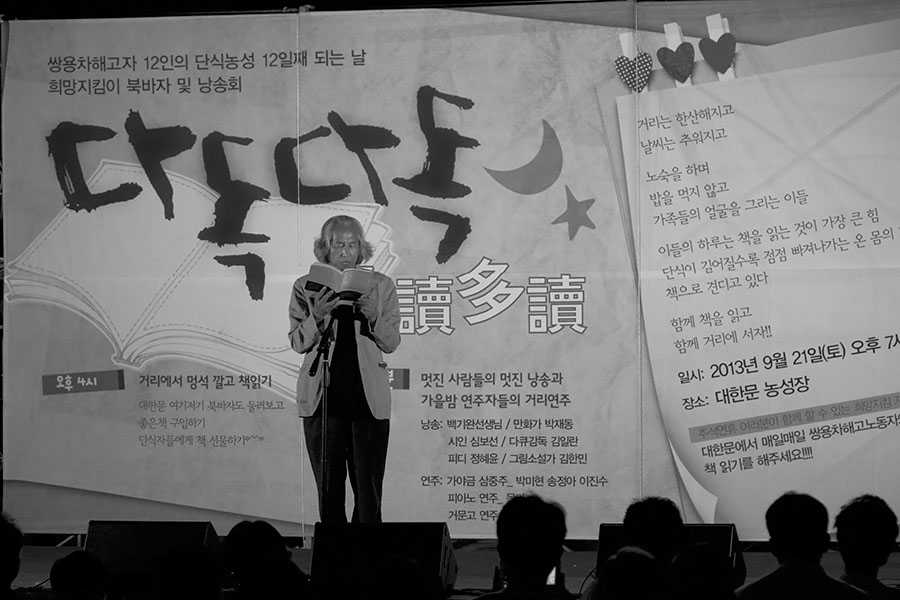 쌍용차해고자 12인의 단식농성 12일째 되는 날
희망지킴이 북바자 및 낭송회
다독다독
讀多讀
오후 4시
거리에서 멍석 깔고 책읽기
대한문 여기저기 북바자도 둘러보고
좋은책 구입하기
단식자들에게 책 선물하기*^^*
멋진 사람들의 멋진 낭송과
가을밤 연주자들의 거리연주
낭송: 백기완선생님 / 만화가 박재동
시인 심보선 / 다큐감독 김일란
피디 정혜윤 / 그림소설가 김한민
연주: 가야금 삼중주_ 박미현 송정아 이진수
피아노 연주_
거문고 연주
거리는 한산해지고
날씨는 추워지고
노숙을 하며
밥을 먹지 않고
가족들의 얼굴을 그리는 이들
이들의 하루는 책을 읽는 것이 가장 큰 힘
단식이 깊어질수록 점점 빠져나가는 온 몸의
책으로 견디고 있다
함께 책을 읽고
함께 거리에 서자!!
일시: 2013년 9월 21일(토) 오후 7시
장소: 대한문 농성장
추석연휴 여러분이 함께 할 수 있는 희망지킴
대한문에서 매일매일 쌍용차해고노동자와
책 읽기를 해주세요!!!!